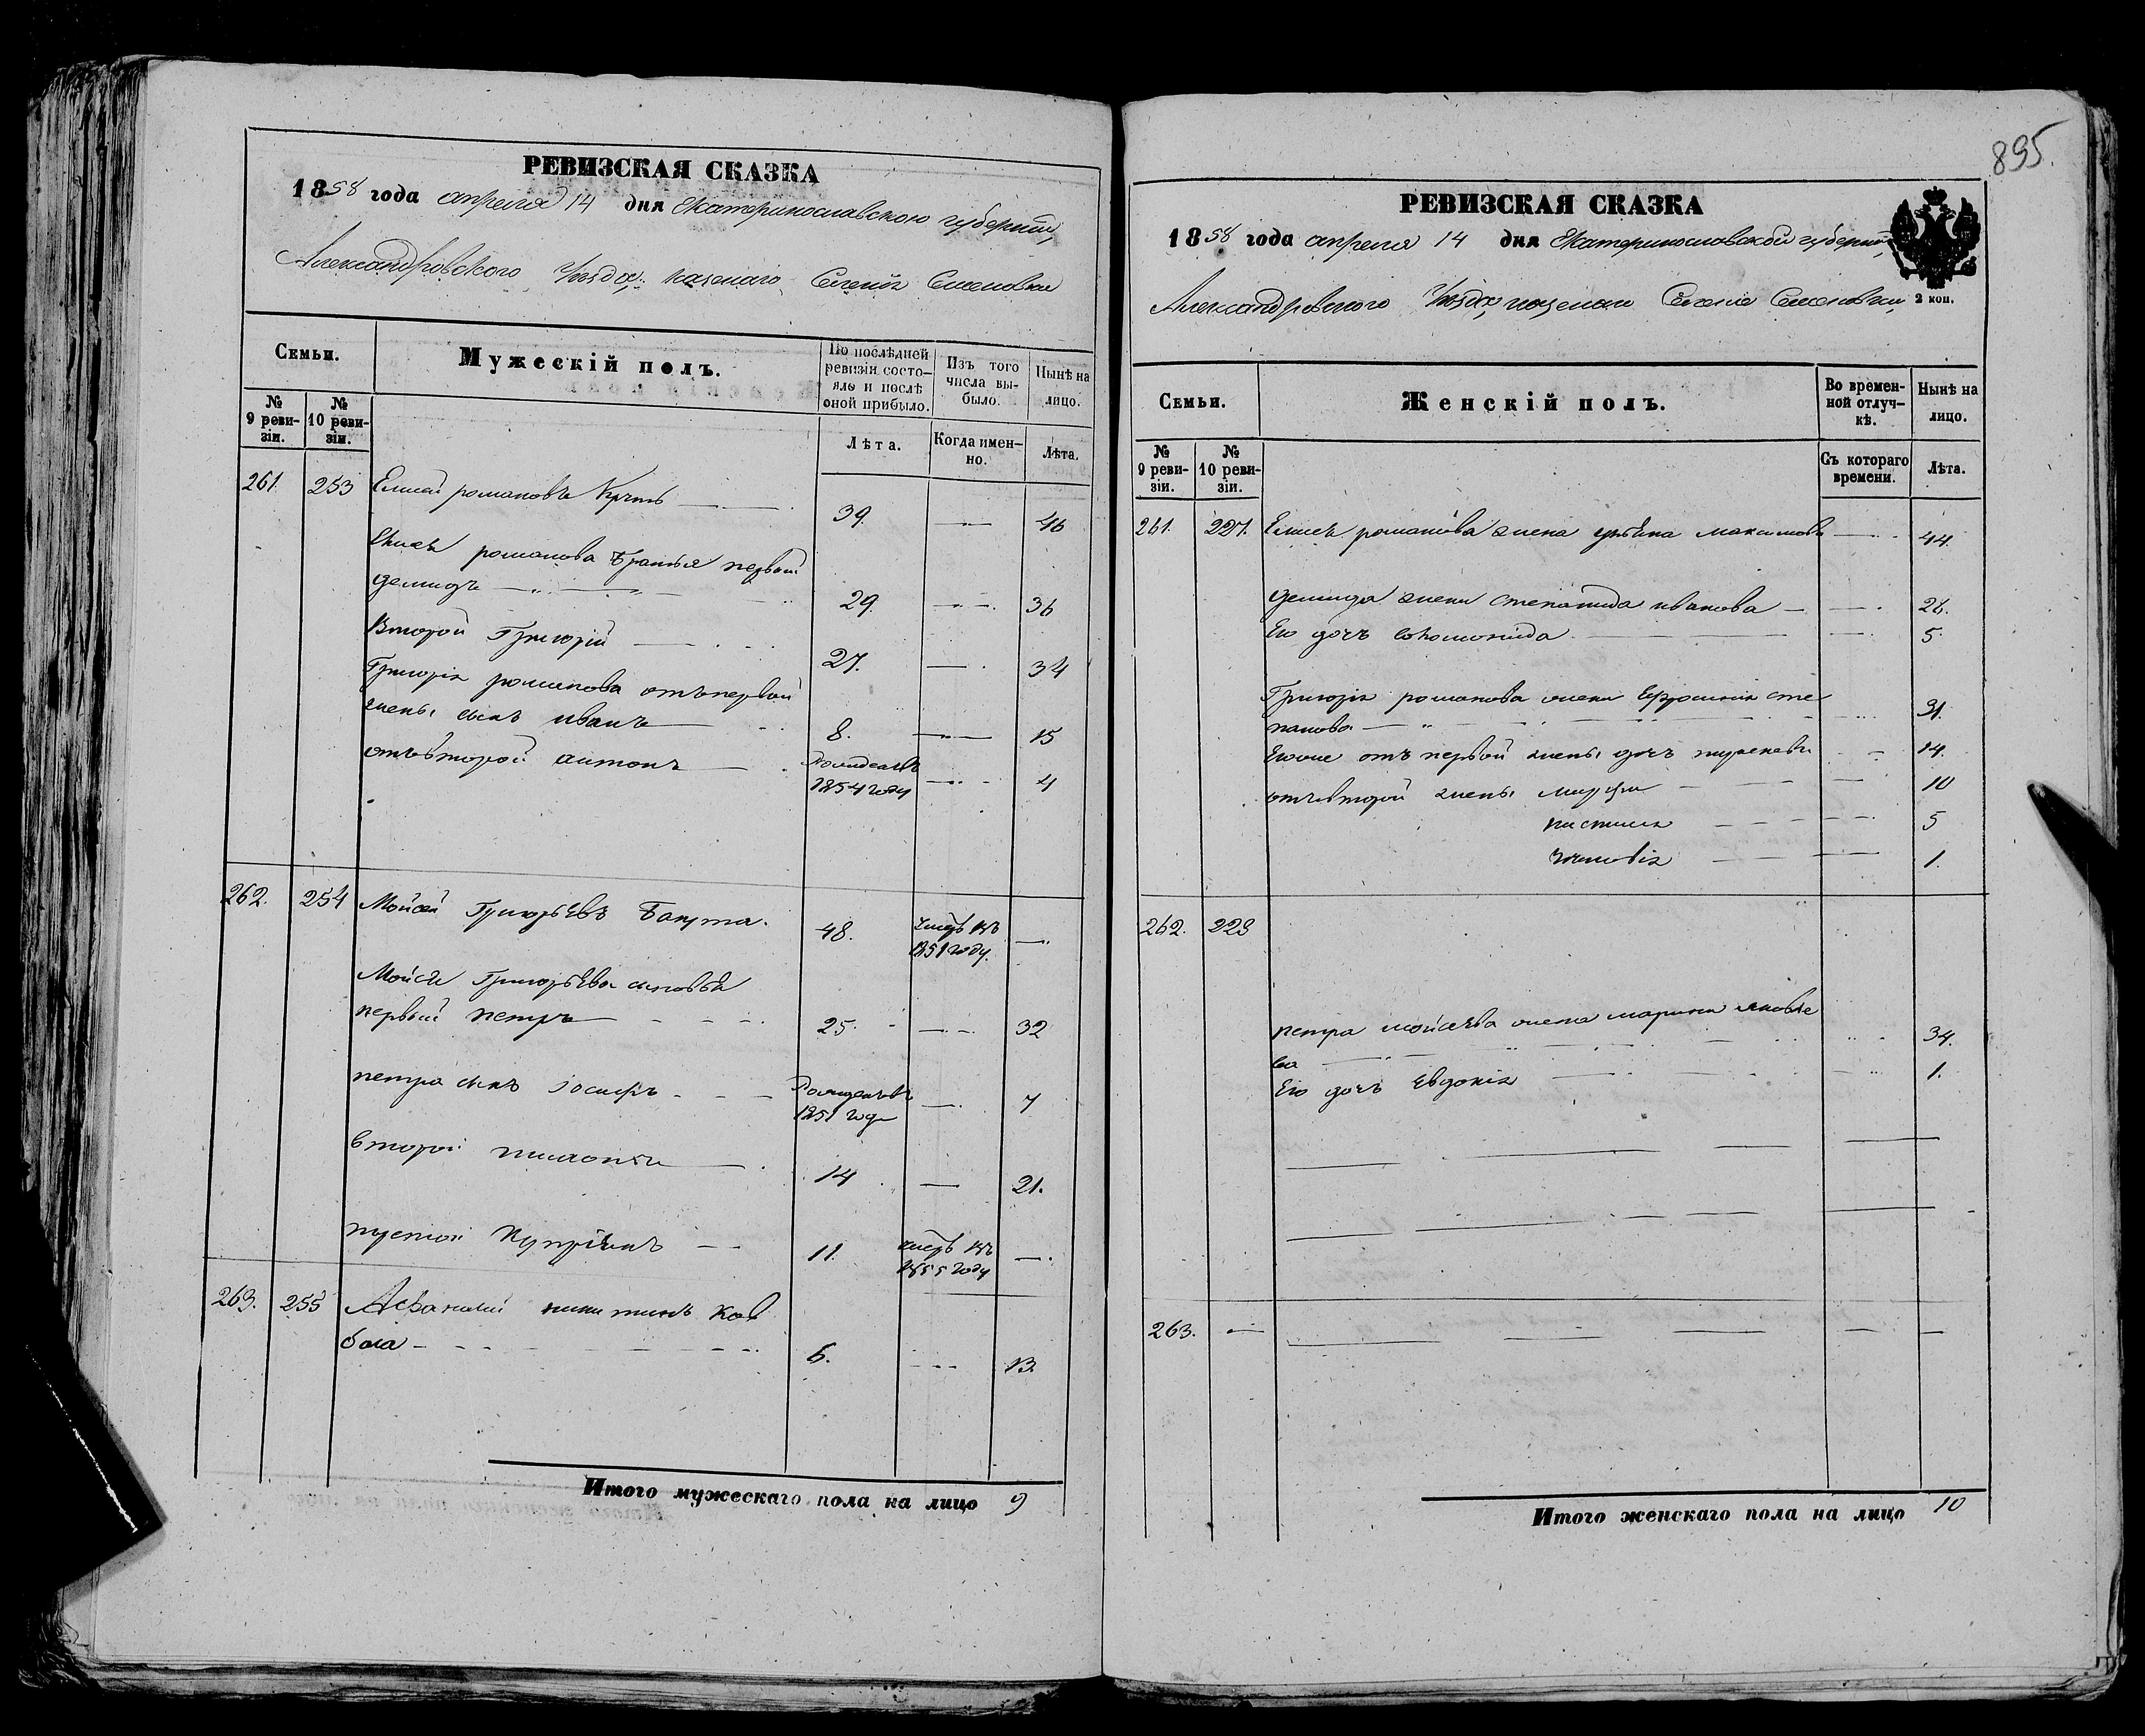 РЕВИЗСКАЯ СКАЗКА
1858 года апреля 14 дня Екатеринославской губернии,
Александровского Уезда, казенаго Селения Семеновки
Семьи.
Мужескій полъ.
По послѣдней ревизіи состо-
яло и послѣ оной прибыло.
Изъ того числа вы-
было.
Нынѣ на лицо.
№ 9 реви-
зіи.
№ 10 реви-
зіи.
Лѣта.
Когда имен-
но.
Лѣта.
261. 253 Елисей романовъ 39. 46
Елисея романова братья первый
демидъ 29. 36
Второй Григорій 27. 34
Григорія романова отъ первой
жены сынъ иванъ 8. 15
отъ второй антонъ рожденъ въ 1854 году 4
262. 254 Мойсей Григорьевъ 48. умеръ въ 1851 году.
Мойсея Григорьева сыновья
первый петръ 25. 32
петра сынъ іосифъ рожденъ въ 1851 году 7
второй 14 21.
третій 11. умеръ въ 1855 году
263. 255 Афанасий никитинъ Ков
баса 6. 13.
Итого мужескаго пола на лицо 9
895.
РЕВИЗСКАЯ СКАЗКА
1858 года апреля 14 дня Екатеринославской губернии,
Александровского Уезда, казенаго Селения Семеновки,
2 коп.
Семьи.
Женскій полъ.
Во времен-
ной отлуч-
кѣ.
Нынѣ на лицо.
№ 9 реви-
зіи.
№ 10 реви-
зіи.
Съ котораго времени.
Лѣта.
261. 227. Елисея романова жена максимова 44.
демида жена степанида иванова 26.
Его дочь соломонида 5.
Григорія романова жена Ефросинія сте
панова 31.
Егоже отъ первой жены дочь 14.
отъ второй жены 10
5
1.
262. 229
петра мойсеева жена марина яковле
ва 34.
Его дочь Евдокія 1.
263.
Итого женскаго пола на лицо 10